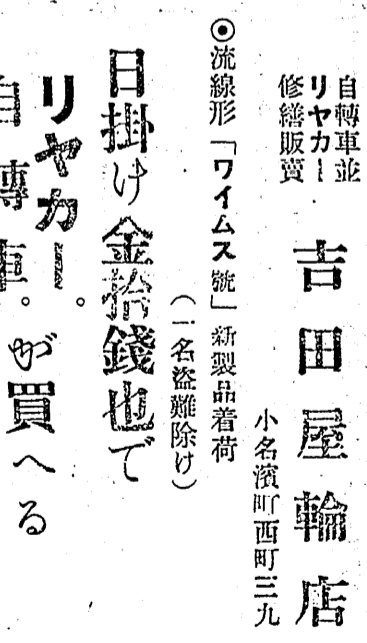 自轉車並
リヤカー
修繕販賣
吉田屋輪店
小名濱町西町三九
◉流線形「ワイムス號」新製品着荷
(一名盗難除け)
日掛け金拾錢也で
リヤカー。が買へる
自轉車。